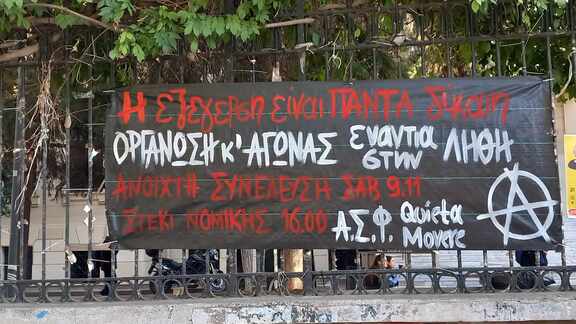 Η εξέγερση είναι ΠΑΝΤΑ δίκαιη
ΟΡΓΑΝΩΣΗ Κ' ΑΓΩΝΑΣ ΕΝΑΝΤΙΑ ΣΤΗΝ ΛΗΘΗ
ΑΝΟΙΧΤΗ ΣΥΝΕΛΕΥΣΗ ΣΑΒ 9.11
ΣΤΕΚΙ ΝΟΜΙΚΗΣ 16.00 Α.Σ.Φ. Quieta Movere